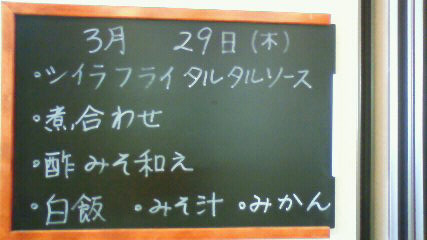 3月 29日(木)
・シイラフライタルタルソース
・煮合わせ
・酢みそ和え
・白飯 ・みそ汁 ・みかん